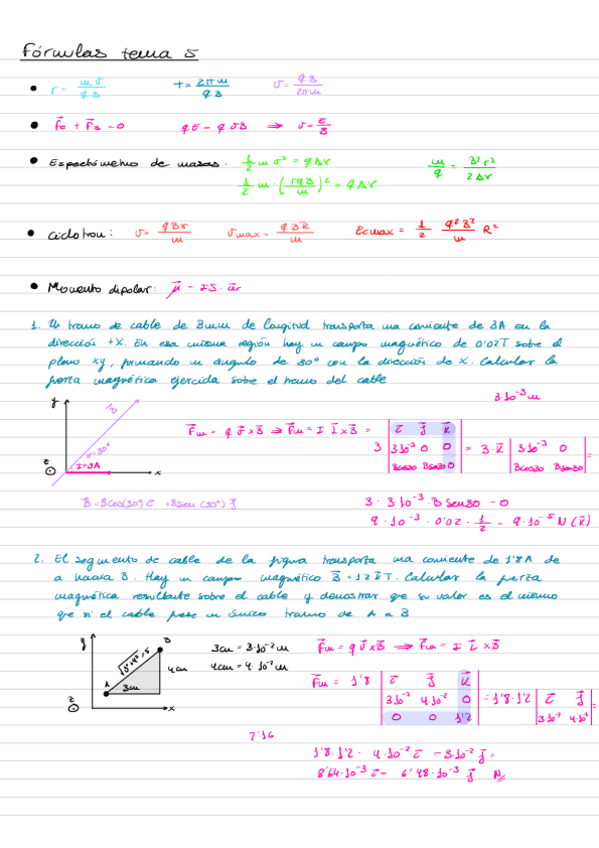 Fórmulas tema 5
• r = mv/qB    T = 2πm/qB    υ = qB/2πm
• F⃗e + F⃗B = 0    qE = qvB ⇒ v = E/B
• Espectómetro de masas: 1/2 m v² = qΔV    m/q = B²r²/2ΔV
1/2 m · (rqB/m)² = qΔV
• Ciclotron: v = qBr/m    vmax = qBR/m    Ecmax = 1/2 q²B²/m R²
• Momento dipolar: μ⃗ = IS · u⃗r
1. Un tramo de cable de 3mm de longitud transporta una corriente de 3A en la
dirección +X. En esa misma región hay un campo magnético de 0'02T sobre el
plano xy, formando un angulo de 30° con la dirección de X. Calcular la
fuerza magnética ejercida sobre el tramo del cable
3·10⁻³ m
y
α=30°
I=3A
z
x
F⃗m = q v⃗ x B⃗ ⇒ F⃗m = I L⃗ x B⃗ = 3 | i⃗ j⃗ k⃗ | 3·10⁻³ 0 0 | Bcos30 Bsen30 0 | = 3·k⃗ | 3·10⁻³ 0 | Bcos30 Bsen30 | =
B⃗ = Bcos(30°) i⃗ + Bsen(30°) j⃗
3 · 3·10⁻³ · B sen30 - 0
9·10⁻³ · 0'02 · 1/2 = 9·10⁻⁵ N (k⃗)
2. El segmento de cable de la figura transporta una corriente de 1'8A de
a hacia B. Hay un campo magnético B⃗ = 1'2 k⃗ T. Calcular la fuerza
magnética resultante sobre el cable y demostrar que su valor es el mismo
que si el cable fuese un único tramo de A a B
y
B
√3²+4² = 5
4cm
A
3cm
z
x
3cm = 3·10⁻² m
4cm = 4·10⁻² m
F⃗m = q v⃗ x B⃗ ⇒ F⃗m = I L⃗ x B⃗
F⃗m = 1'8 · | i⃗ j⃗ k⃗ | 3·10⁻² 4·10⁻² 0 | 0 0 1'2 | = 1'8·1'2 | i⃗ j⃗ | 3·10⁻² 4·10⁻² | =
2'16
1'8·1'2 · 4·10⁻² i⃗ - 3·10⁻² j⃗ =
8'64·10⁻² i⃗ - 6'48·10⁻² j⃗ N